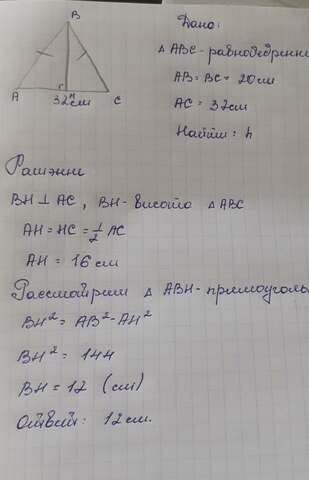 B
A
H
C
32см
Дано:
△ ABC - равнобедренн
AB = BC = 20см
AC = 32см
Найти: h
Рашэнне
BH ⊥ AC, BH - высото △ ABC
AH = HC = 1/2 AC
AH = 16 см
Рассмотрим △ ABH - прямоуголь
BH² = AB² - AH²
BH² = 144
BH = 12 (см)
Ответ: 12 см.